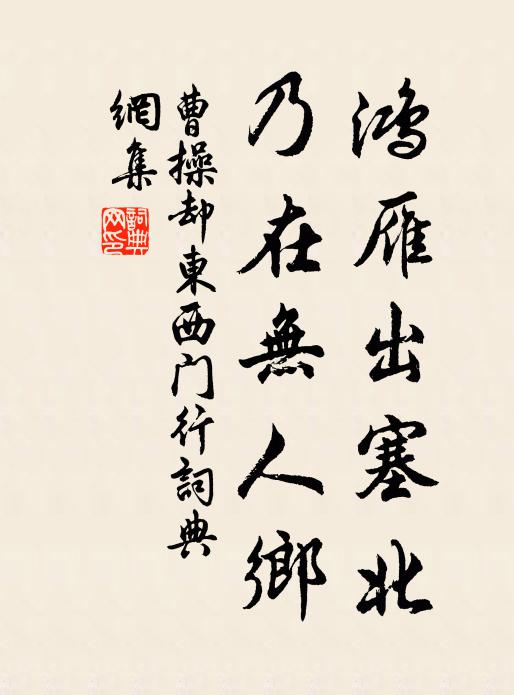 鴻雁出塞北
乃在無人鄉
曹操却東西门行詞典
網集
詞典
网印